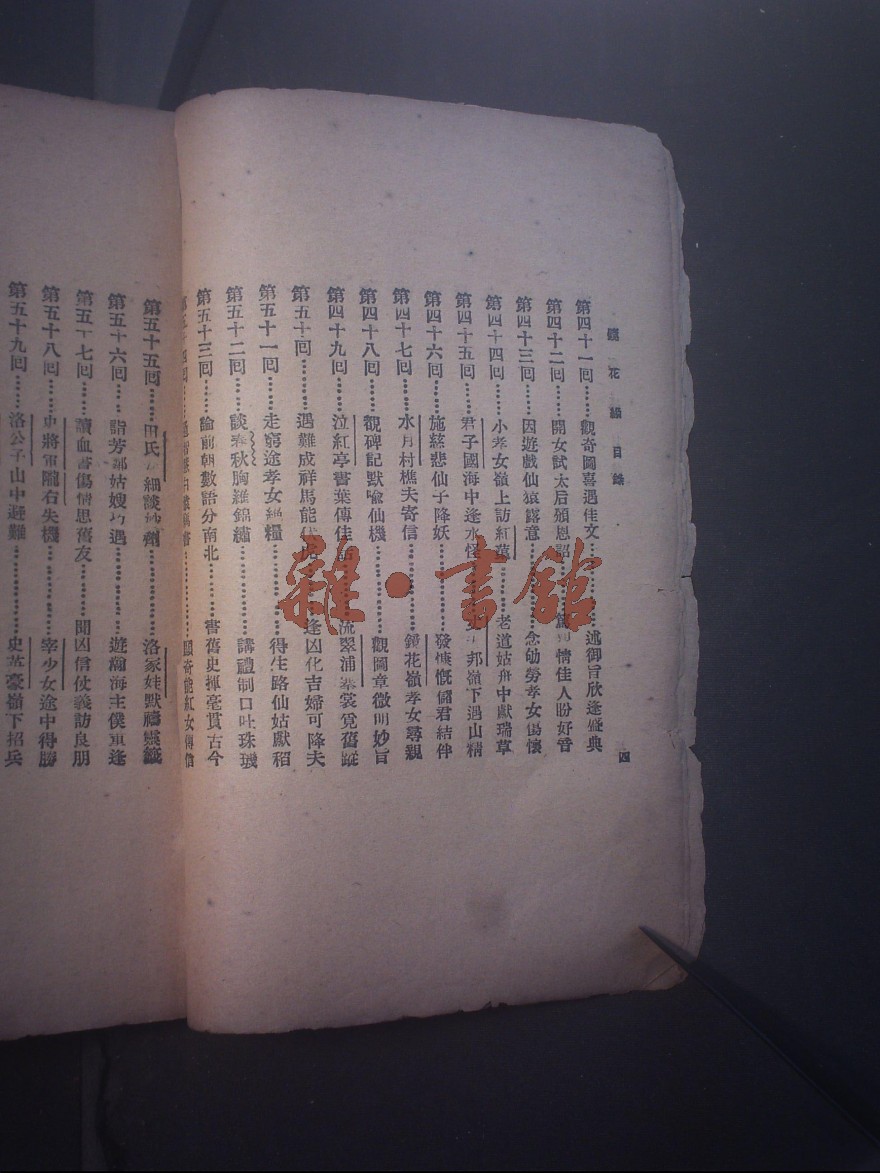 鏡花緣目錄
四
第四十一回……觀奇圖喜遇佳文……述御旨欣逢盛典
第四十二回……開女試太后頒恩詔……情佳人盼好音
第四十三回……因遊戲仙猿露意……念劬勞孝女傷懷
第四十四回……小孝女嶺上訪紅蕖……老道姑舟中獻瑞草
第四十五回……君子國海中逢水怪……邦嶺下遇山精
第四十六回……施慈悲仙子降妖……發慷慨儲君結伴
第四十七回……水月村樵夫寄信……鏡花嶺孝女尋親
第四十八回……觀碑記默喻仙機……觀圖章微明妙旨
第四十九回……泣紅亭書葉傳佳話……流翠浦搴裳覓舊蹤
第五十回……遇難成祥馬能伏虎……逢凶化吉婦可降夫
第五十一回……走窮途孝女絕糧……得生路仙姑獻稻
第五十二回……談春秋胸羅錦繡……講禮制口吐珠璣
第五十三回……論前朝數語分南北……書舊史揮毫貫古今
第五十四回……書……顯奇能紅女傳信
第五十五回……田氏女細談妙劑……洛家娃默禱靈籤
第五十六回……詣芳鄰姑嫂巧遇……遊瀚海主僕重逢
第五十七回……讀血書傷情思舊友……聞凶信仗義訪良朋
第五十八回……史將軍隴右失機……宰少女途中得勝
第五十九回……洛公子山中避難……史英豪嶺下招兵
雜·書館